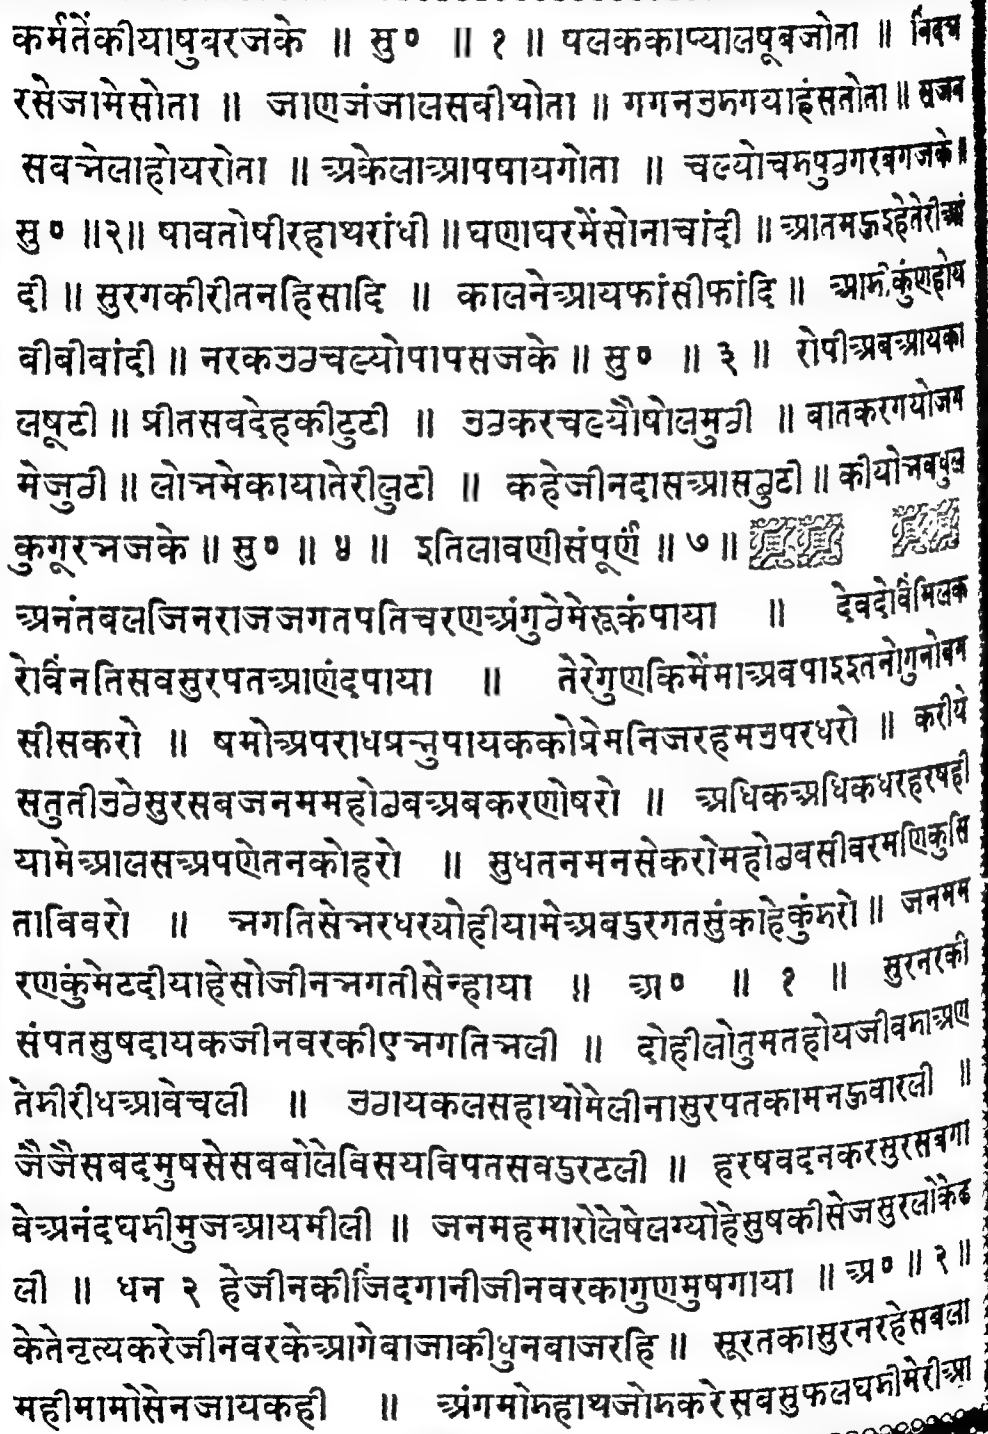 कर्मतेंकीयाषुबरजके ॥ सु० ॥ १ ॥ पलककाप्यालषूबजोता ॥ निंदभ
रसेजामेसोता ॥ जाणजंजालसबीथोता ॥ गगनउडगयाहंसतोता ॥ सुजन
सबभेलाहोयरोता ॥ अकेलाआपपायगोता ॥ चल्योचडपुठगरबगजके ॥
सु० ॥२॥ षावतोषीरहाथरांधी ॥ घणाघरमेंसोनाचांदी ॥ आतमझुइहेतेरीआं
दी ॥ सुरगकीरीतनहिसादि ॥ कालनेआयफांसीफांदि ॥ आडीकुंणहोय
बीबीबांदी ॥ नरकउठचल्योपापसजके ॥ सु० ॥ ३ ॥ रोपीअबआयका
लषूटी ॥ प्रीतसबदेहकीटुटी ॥ उठकरचल्यौषोलमुठी ॥ बातकरगयोजग
मेजुठी ॥ लोभमेकायातेरीलुटी ॥ कहेजीनदासआसठुटी ॥ कीयोभवधुल
कुगूरभजके ॥ सु० ॥ ४ ॥ इतिलावणीसंपूर्ण ॥ ७ ॥
अनंतबलजिनराजजगतपतिचरणअंगुठेमेरूकंपाया ॥ देवदोविंमिलक
रोविंनतिसबसुरपतआणंदपाया ॥ तेरेगुणकिमेंमाअबपाइइतनोगुनोबग
सीसकरो ॥ षमोअपराधप्रभुपायककोप्रेमनिजरहमउपरधरो ॥ करीये
सतुतीउठेसुरसबजनममहोठवअबकरणोषरो ॥ अधिकअधिकधरहरषही
यामेआलसअपणेतनकोहरो ॥ सुधतनमनसेकरोमहोठवसीवरमणिकुसि
ताबिवरो ॥ भगतिसेभरधरयोहीयामेअबडुरगतसुंकाहेकुंडरो ॥ जनमम
रणकुंमेटदीयाहेसोजीनभगतीसेन्हाया ॥ अ० ॥ १ ॥ सुरनरकी
संपतसुषदायकजीनवरकीएभगतिभली ॥ दोहीलोतुमतहोयजीवडाअण
तेडीरीधआवेचली ॥ उठायकलसहाथोमेलीनासुरपतकामनझुवारली ॥
जैजैसबदमुषसेसबबोलेविसयविपतसबडुरटली ॥ हरषवदनकरसुरसबगा
वेअनंदघडीमुजआयमीली ॥ जनमहमारोलेषेलग्योहेसुषकीसेजसुरलोकेढ
ली ॥ धन २ हेजीनकीजिंदगानीजीनवरकागुणमुषगाया ॥ अ० ॥ २ ॥
केतेनृत्यकरेजीनवरकेआगेबाजाकीधुनबाजरहि ॥ सूरतकासुरनरहेसबला
महीमामोसेनजायकही ॥ अंगमोडहाथजोडकरेसबसुफलघडीमेरीआ